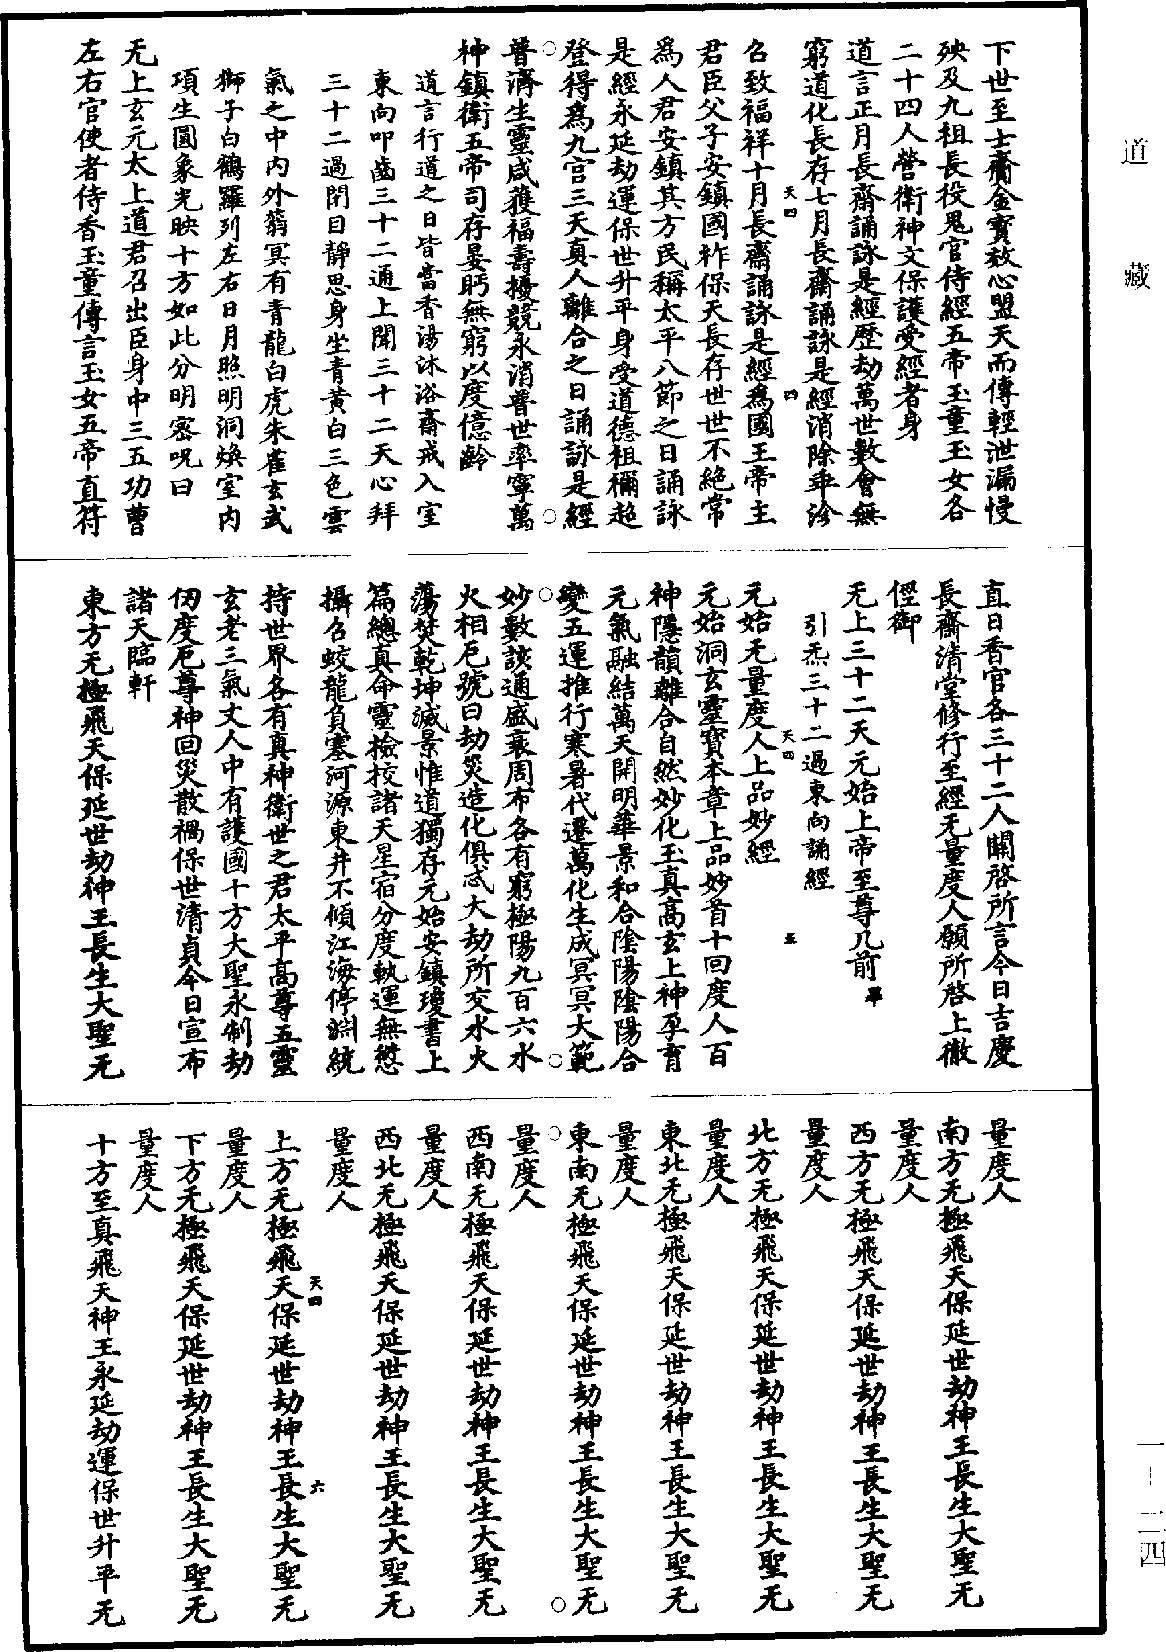 下世至士齎金寶效心盟天而傳輕泄漏慢
殃及九祖長役鬼官侍經五帝玉童玉女各
二十四人營衛神文保護受經者身
道言正月長齋誦詠是經歷劫萬世數會無
窮道化長存七月長齋誦詠是經消除乖沴
天四
四
召致福祥十月長齋誦詠是經為國王帝主
君臣父子安鎮國祚保天長存世世不絕常
為人君安鎮其方民稱太平八節之日誦詠
是經永延劫運保世升平身受道德祖禰超
登得為九宫三天真人離合之日誦詠是經
普濟生靈咸獲福壽擾競永消普世率寧萬
神鎮衛五帝司存晏眄無窮以度億齡
道言行道之日皆當香湯沐浴齋戒入室
東向叩齒三十二通上聞三十二天心拜
三十二過閉目靜思身坐青黃白三色雲
氣之中内外蓊冥有青龍白虎朱雀玄武
獅子白鶴羅列左右日月照明洞煥室内
項生圓象光映十方如此分明密呪曰
无上玄元太上道君召出臣身中三五功曹
左右官使者侍香玉童傳言玉女五帝直符
直日香官各三十二人關啓所言今日吉慶
長齋清堂修行至經无量度人願所啓上徹
徑御
无上三十二天元始上帝至尊几前 畢
引炁三十二過東向誦經
天四
五
元始无量度人上品妙經
元始洞玄靈寶本章上品妙首十回度人百
神隱韻離合自然妙化玉真高玄上神孕育
元氣融結萬天開明華景和合陰陽陰陽合
變五運推行寒暑代遷萬化生成冥冥大範
妙數該通盛衰周布各有窮極陽九百六水
火相厄號曰劫災造化俱忒大劫所交水火
蕩焚乾坤滅景惟道獨存元始安鎮瓊書上
篇總真命靈檢校諸天星宿分度執運無愆
攝召蛟龍負塞河源東井不傾江海停淵統
持世界各有真神衛世之君太平高尊五靈
玄老三氣丈人中有護國十方大聖永制劫
仞度厄尊神回災散禍保世清貞今日宣布
諸天臨軒
東方无極飛天保延世劫神王長生大聖无
量度人
南方无極飛天保延世劫神王長生大聖无
量度人
西方无極飛天保延世劫神王長生大聖无
量度人
北方无極飛天保延世劫神王長生大聖无
量度人
東北无極飛天保延世劫神王長生大聖无
量度人
東南无極飛天保延世劫神王長生大聖无
量度人
西南无極飛天保延世劫神王長生大聖无
量度人
西北无極飛天保延世劫神王長生大聖无
量度人
天四
六
上方无極飛天保延世劫神王長生大聖无
量度人
下方无極飛天保延世劫神王長生大聖无
量度人
十方至真飛天神王永延劫運保世升平无
道藏
一-二四